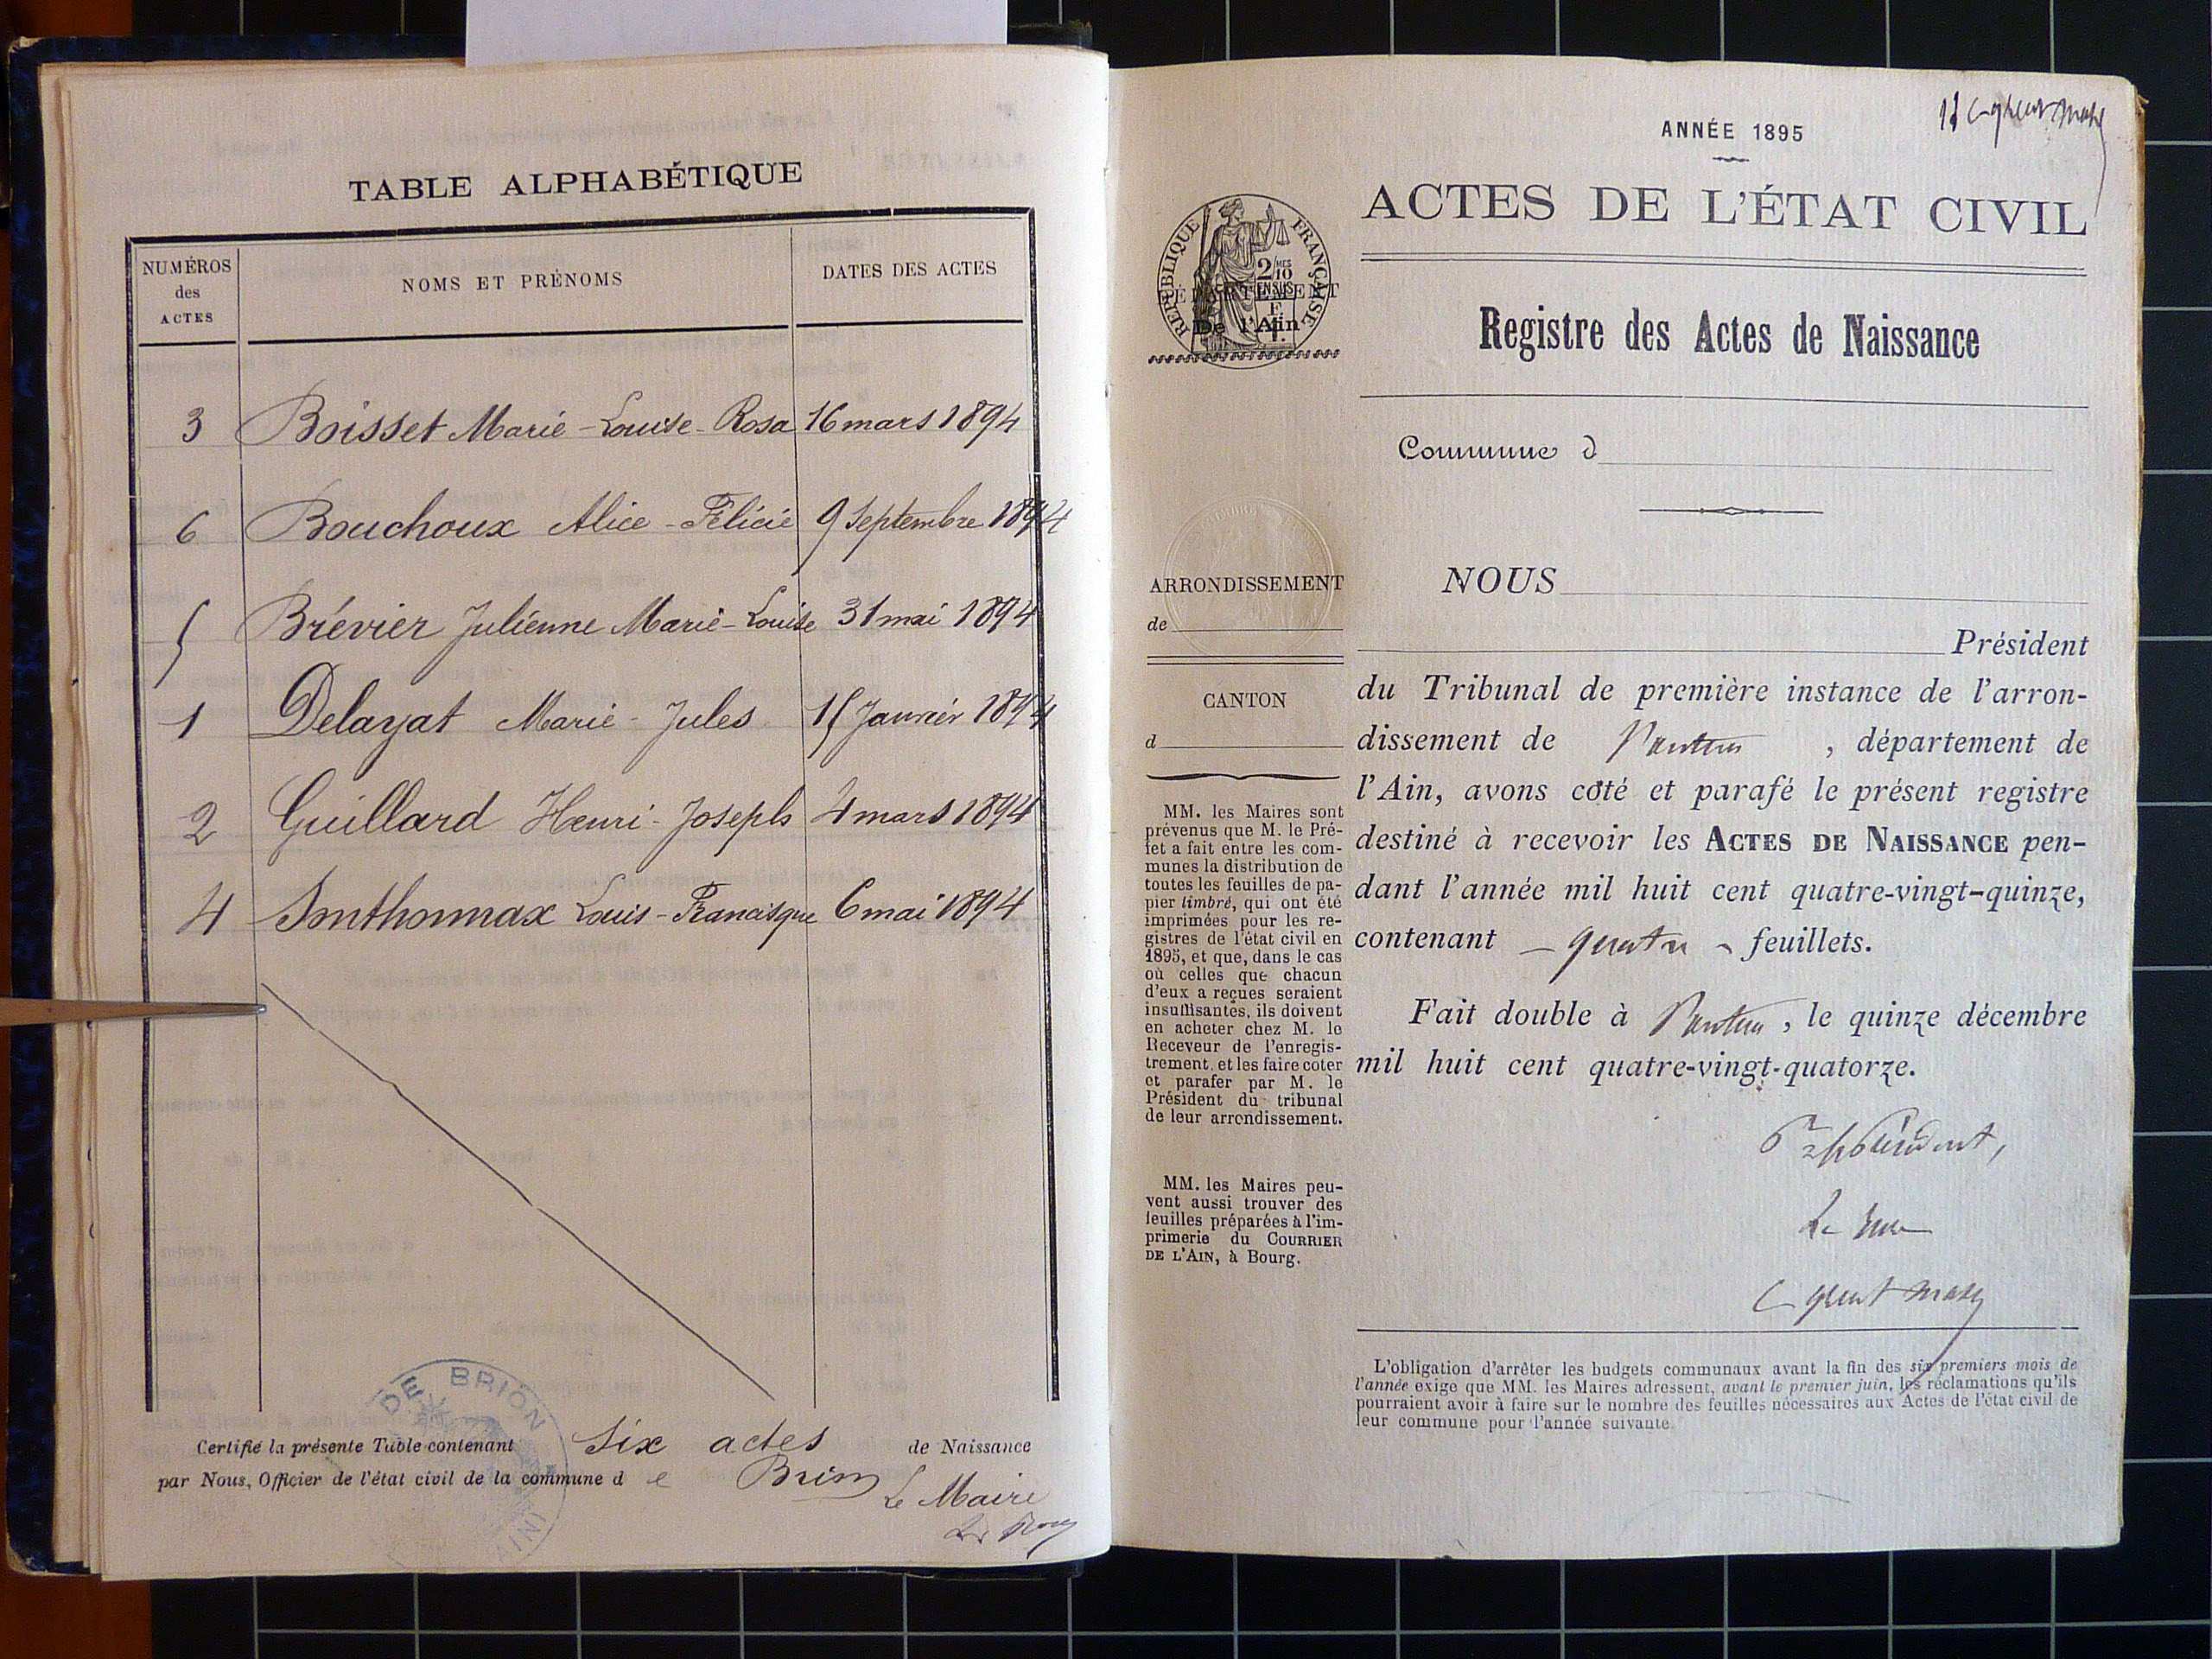 TABLE ALPHABÉTIQUE
NUMÉROS
des
ACTES
NOMS ET PRÉNOMS
DATES DES ACTES
3 Boisset Marie-Louise-Rosa 16 mars 1894
6 Bouchoux Alice-Félicie 9 Septembre 1894
5 Brévier Julienne Marie-Louise 31 mai 1894
1 Delayat Marie-Jules 15 Janvier 1894
2 Guillard Henri-Joseph 4 mars 1894
4 Louis-Francisque 6 mai 1894
DE BRION
Certifié la présente Table contenant six actes de Naissance
par Nous, Officier de l'état civil de la commune d e Brion
Le Maire
ANNÉE 1895
ACTES DE L'ÉTAT CIVIL
RÉPUBLIQUE FRANÇAISE
2/10
DÉPARTEMENT
De l'Ain
Registre des Actes de Naissance
Commune d
ARRONDISSEMENT
de
CANTON
d
MM. les Maires sont
prévenus que M. le Pré-
fet a fait entre les com-
munes la distribution de
toutes les feuilles de pa-
pier timbré, qui ont été
imprimées pour les re-
gistres de l'état civil en
1895, et que, dans le cas
où celles que chacun
d'eux a reçues seraient
insuffisantes, ils doivent
en acheter chez M. le
Receveur de l'enregis-
trement, et les faire coter
et parafer par M. le
Président du tribunal
de leur arrondissement.
MM. les Maires peu-
vent aussi trouver des
feuilles préparées à l'im-
primerie du COURRIER
DE L'AIN, à Bourg.
NOUS
Président
du Tribunal de première instance de l'arron-
dissement de Nantua, département de
l'Ain, avons coté et parafé le présent registre
destiné à recevoir les ACTES DE NAISSANCE pen-
dant l'année mil huit cent quatre-vingt-quinze,
contenant - quatre - feuillets.
Fait double à Nantua, le quinze décembre
mil huit cent quatre-vingt-quatorze.
L'obligation d'arrêter les budgets communaux avant la fin des six premiers mois de
l'année exige que MM. les Maires adressent, avant le premier juin, les réclamations qu'ils
pourraient avoir à faire sur le nombre des feuilles nécessaires aux Actes de l'état civil de
leur commune pour l'année suivante.